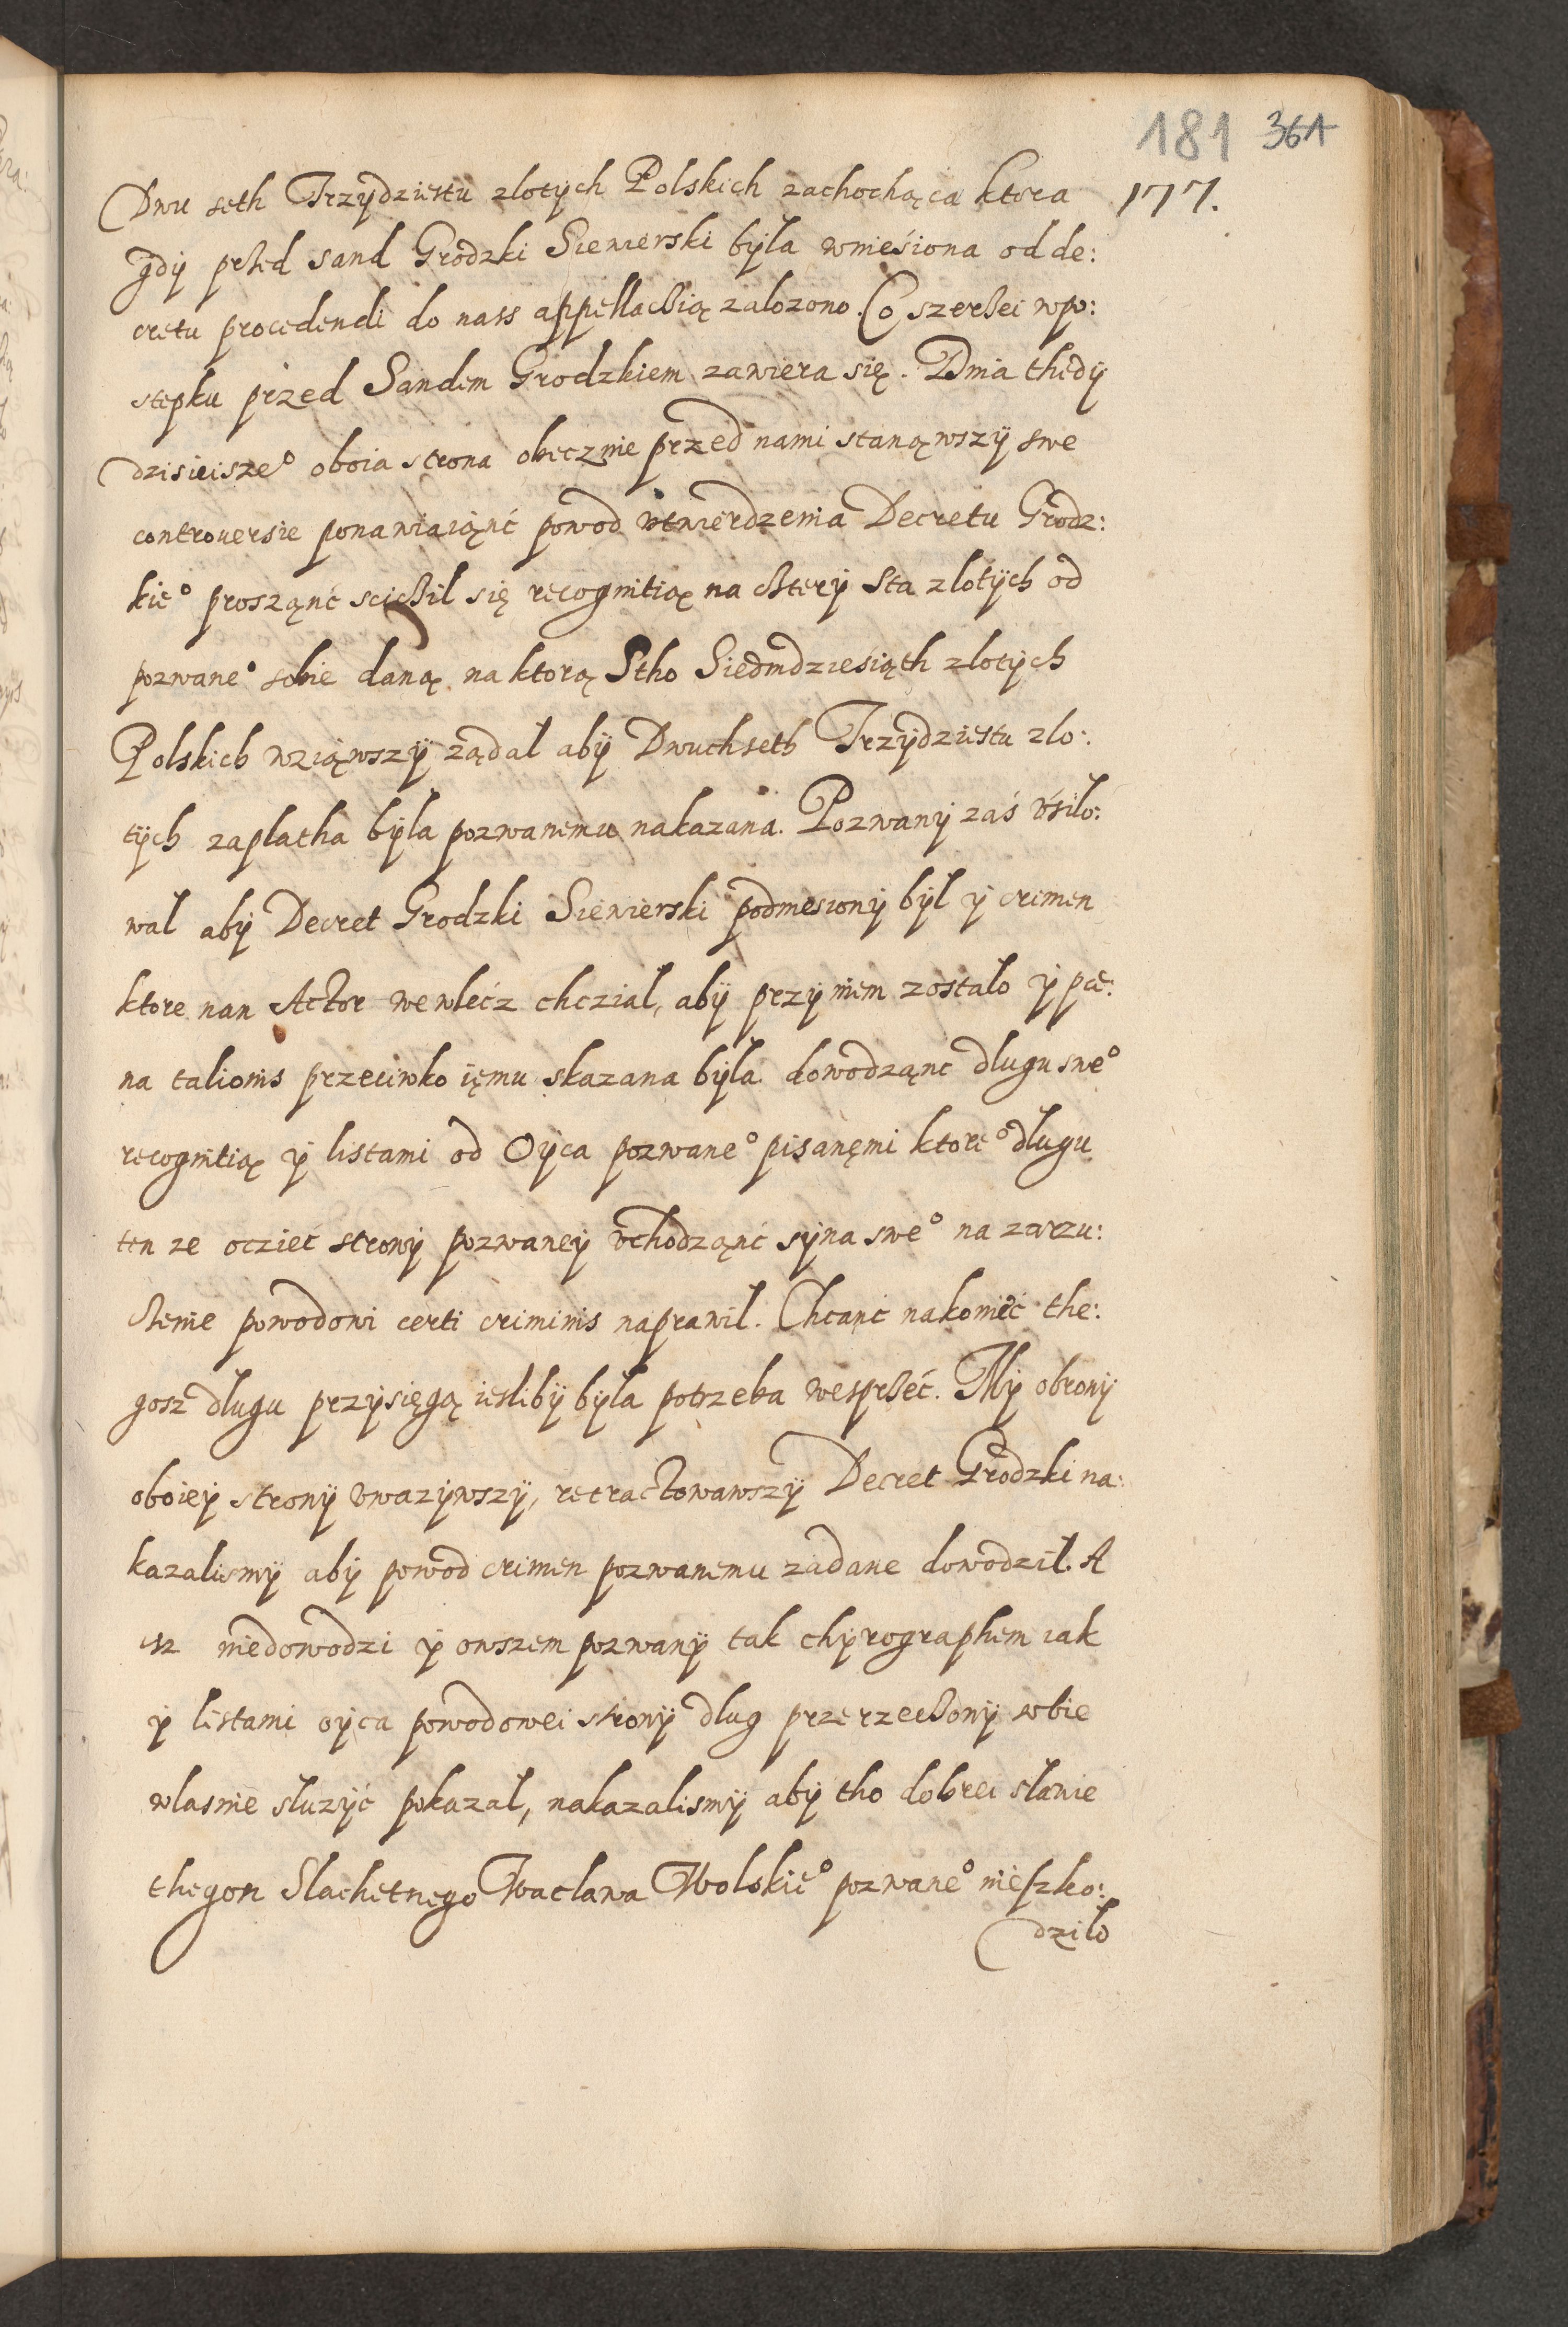 181 361
177.
Dwu seth Trzydziestu zlotÿch Polskich zachochąca ktora
gdÿ przed sand Grodzki Siewierski bÿla wnieśiona od de:
cretu procedendi do nass appellaczią zalozono. Co szerzei w po:
stepku przed Sandem Grodzkiem zawiera się. Dnia thedÿ
dzisieisze° oboia strona obecznie przed nami stanąwszÿ swe
controuersie ponawiaiąnć powod vtwierdzenia Decretu Grodz:
kie° prosząnć scicził się recognitią na czterÿ sta zlotÿch od
pozwane° sobie daną na ktorą Stho Siedmdziesiąth zlotÿch
Polskich wziąwszÿ ządal abÿ Dwuchseth Trzÿdziestu zlo:
tÿch zaplatha bÿla pozwanemu nakazana. Pozwanÿ zaś vśilo:
wal abÿ Decret Grodzki Siewierski podniesionÿ bÿl ÿ crimen
ktore nan Actor wewlećz chczial, abÿ przÿ niem zostalo ÿ pæ:
na talionis przeciwko ięmu skazana bÿla. dowodząnć dlugu swe°
recognitią ÿ listami od Oÿca pozwane° pisanęmi ktore° dlugu
ten ze oczieć stronÿ pozwanęÿ vchodząnć sÿna swe° na zarzu:
czenie powodowi certi criminis naprawil. Chcanć nakonieć the:
gosz dlugu przÿsięgą iesliby bÿla potrzeba wesprzeć. Mÿ obronÿ
oboieÿ stronÿ vwazÿwszÿ, retractowawszÿ Decret Grodzki na:
kazalismÿ abÿ powod crimen pozwanemu zadane dowodzil. A
isz niedowodzi ÿ owszem pozwanÿ tak chÿrographem iak
ÿ listami oÿca powodowei stronÿ dlug przerzeczonÿ sobie
wlasnie sluzÿć pokazal, nakazalismÿ abÿ tho dobrei slawie
thegon Slachetnego Waclawa Wolskie° pozwane° nieszko:
dzilo